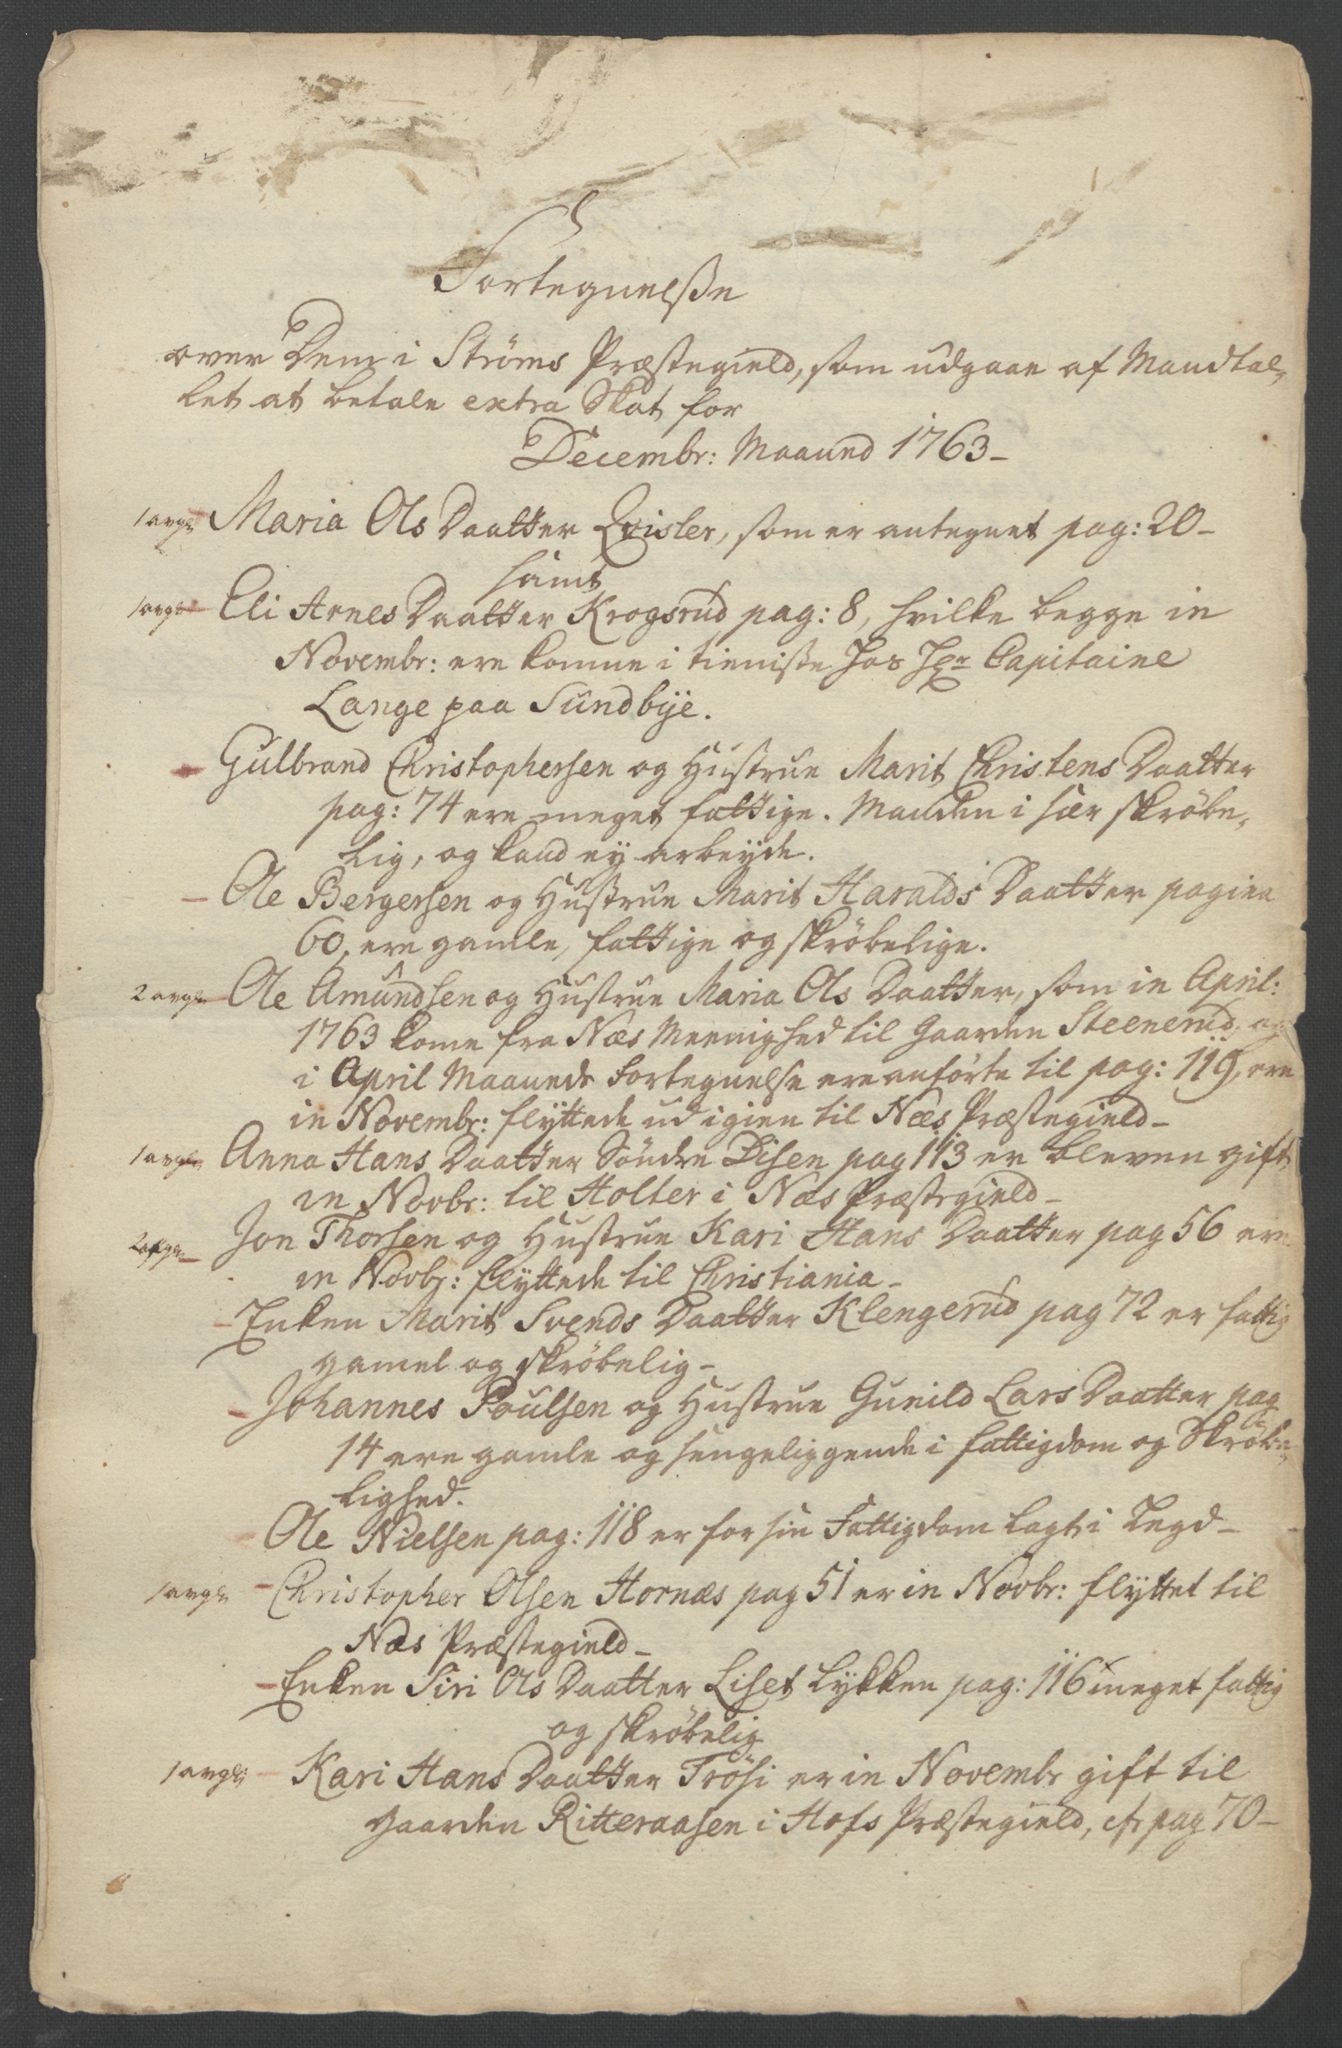 Fortegnelsse
over Dem i Strøms Præstegield, som udgaae af Mandtal,
let at betale extra Skat for
Decembr: Maaned 1763-
Maria Ols Daatter Qvisler, som er antegnet pag: 20-
samt
Eli Arnes Daatter Krogsrud pag: 8, hvilke begge in
Novembr: ere komne i tieniste hos Hr Capitaine
Lange paa Sundbye.
Gulbrand Christophersen og Hustrue Marit Christens Daatter
pag: 74 ere meget fattige. Manden i sær skrøbe,
lig, og kand ey arbeyde.
Ole Bergersen og Hustrue Marit Haralds Daatter pagina
60, ere gamle, fattige og skrøbelige.
2 avgl: Ole Amundsen og Hustrue Maria Ols Daatter, som in April:
1763 kome fra Næs Meenighed til Gaarden Steenerud, og
i April Maaneds Fortegnelse ere anførte til pag: 119, ere
in Novembr: flyttede ud igien til Næs Præstegield-
1 avgl: Anna Hans Daatter Søndre Disen pag 113 er bleven gift
in Novbr: til Holter i Næs Præstegield-
Jon Thorsen og Hustrue Kari Hans Daatter pag 56 ere
in Novbr: flyttede til Christiania-
Enken Marit Svends Daatter Klengerud pag 72 er fattig
gamel og skrøbelig-
Johannes Poulsen og Hustrue Gunild Lars Daatter pag
14 ere gamle og sengeliggende i fattigdom og Skrøbe,
lighed.
Ole Nielsen pag: 118 er for sin Fattigdom lagt i Legd-
1 avgl: Christopher Olsen Hornæs pag 51 er in Novbr: flyttet til
Næs Præstegield-
Enken Siri Ols Daatter Liset Løkken pag: 116 meget fattig
og skrøbelig
1 avgl: Kari Hans Daatter Trøsi er in Novembr gift til
Gaarden Ritteraasen i Hofs Præstegield, cfr pag 70-